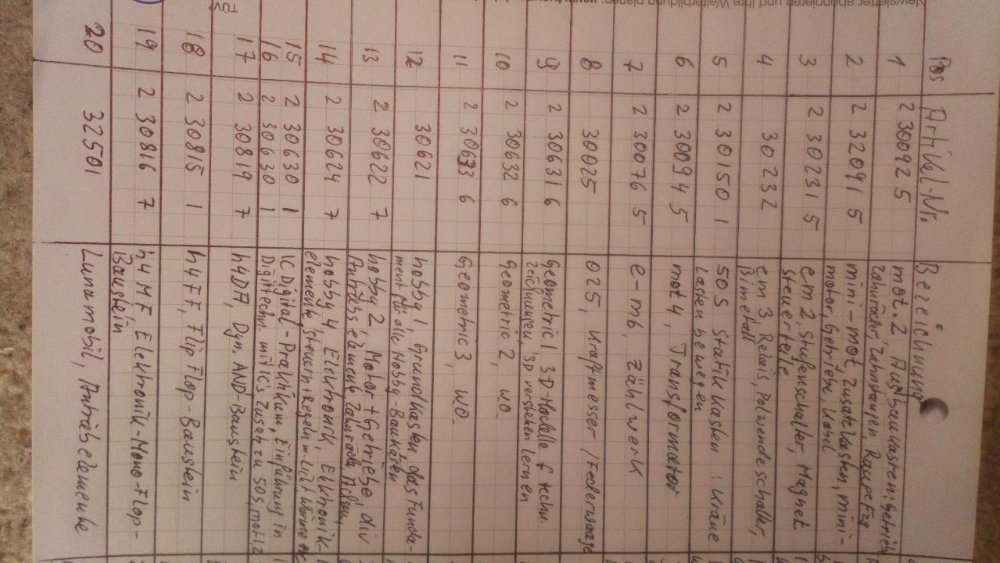 Newsletter abonnieren und Ihre Weiterbildung planen:
TÜV
Pos Artikel-Nr. Bezeichnung
1 2 30092 5 mot. 2 Ausbaukasten: Getriebe
Zahnräder, Zahnstangen, Raupefzg
2 2 32091 5 mini-mot, Zusatzkasten, mini-
motor, Getriebe, Kabel
3 2 30231 5 e-m 2, Stufenschalter, Magnet
steuerteile
4 30232 e-m 3 Relais, Polwendeschalter,
Bimetall
5 2 30150 1 50 S Statikkasten : Kräne
Lasten bewegen
6 2 30094 5 mot 4, Transformator
7 2 30076 5 e-m 6, Zählwerk
8 30025 025, Kraftmesser / Federwaage
9 2 30631 6 Geometric 1 3D-Modelle f techn
Zeichnungen, 3D verstehen lernen
10 2 30632 6 Geometric 2, wo
11 2 30633 6 Geometric 3, wo.
12 30621 hobby 1, Grundkasten das Funda-
ment für alle Hobby-Baukästen
13 2 30622 7 hobby 2, Motor + Getriebe, div
Antriebselemente Zahnräder,
14 2 30624 7 hobby 4, Elektronik, Elektronik-
elemente, Steuern Regeln m. Licht Wärme
15 2 30630 1 IC Digital-Praktikum, Einführung in
16 2 30630 1 Digitaltechn. mit ICs Zusatz zu 50S, mot 1 2
17 2 30819 7 h4DA, Dyn. AND-Baustein
18 2 30815 1 h4FF, Flip Flop-Baustein
19 2 30816 7 h4 MF, Elektronik-Mono-Flop-
Baustein
20 32501 Lunamobil, Antriebelemente